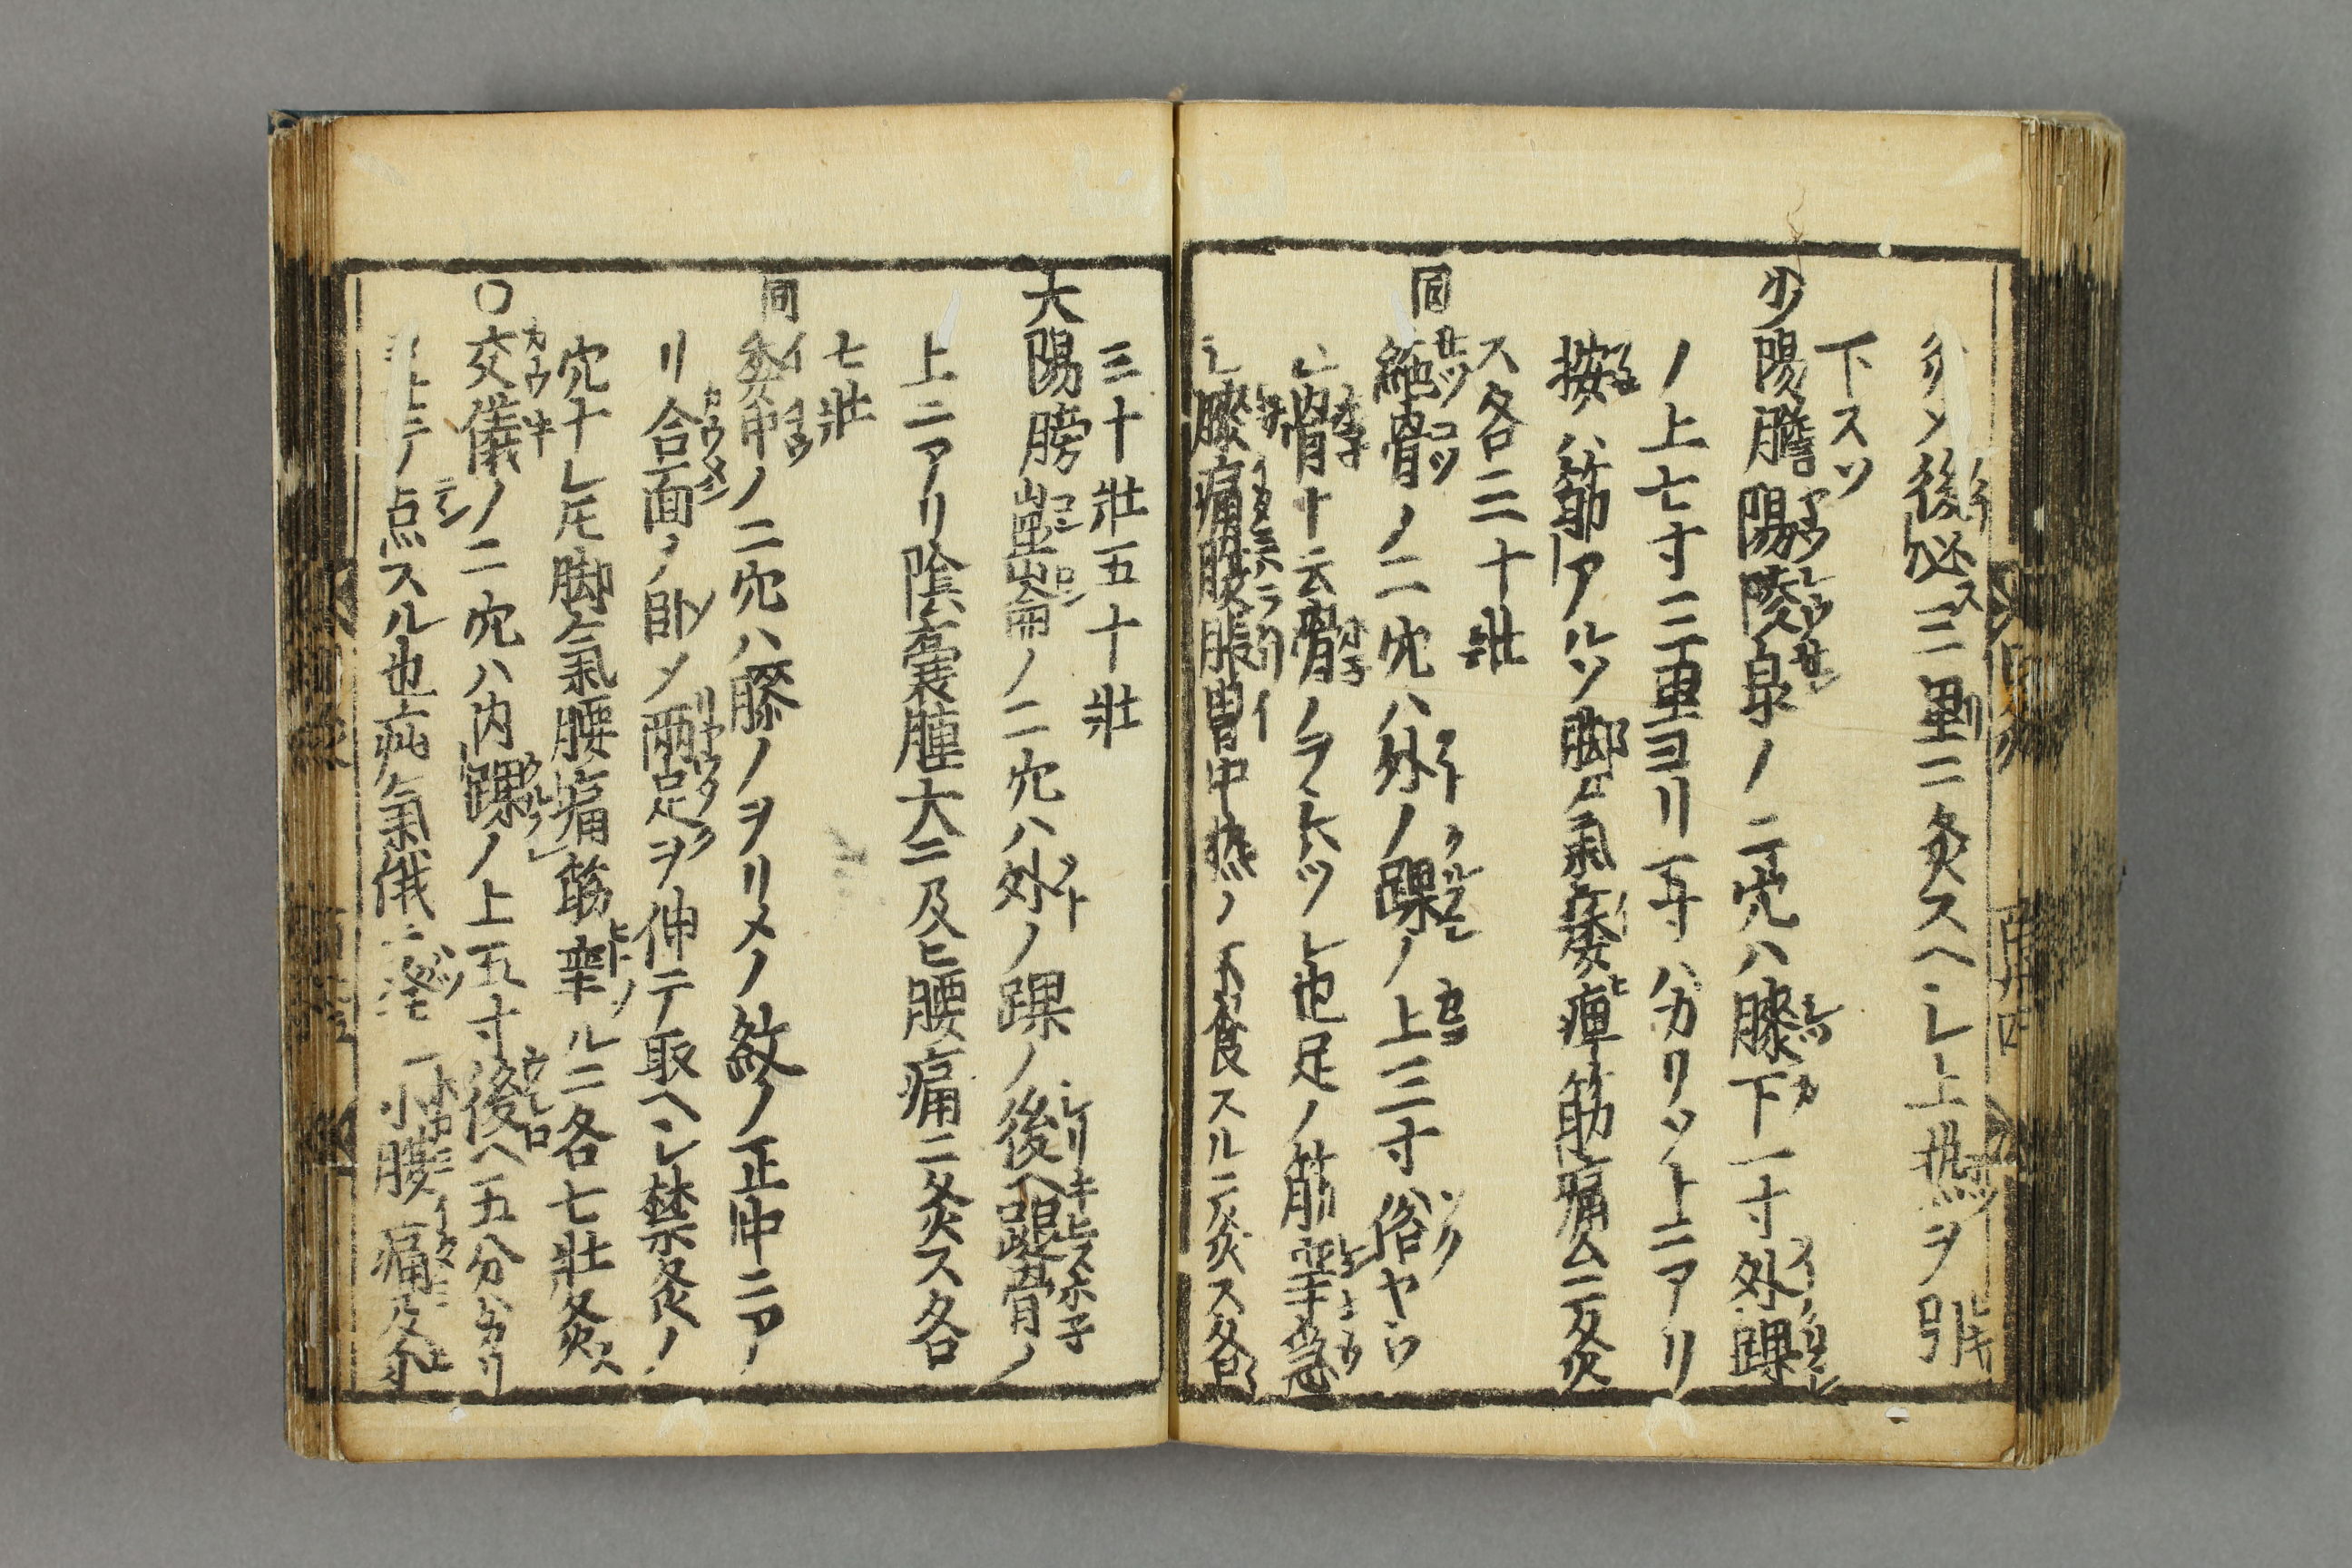 後必ス三里ニ灸スヘシ上热ヲ引
下スソ
少陽膽陽陵泉ノ二穴ハ膝下一寸外踝
ノ上七寸三里ヨリ一寸ハカリソトニアリ
按ハ筋アルソ脚氣痿痺筋痛ムニ灸
ス各三十壯
同絶骨ノ二穴ハ外ノ踝ノ上三寸俗ヤウ
骨ト云骨ノ也足ノ筋攣急
膝痛腹脹胃中热ノ不食スルニ灸ス各
三十壯五十壯
大陽膀崑崙ノ二穴ハ外ノ踝ノ後ヘ跟骨ノ
上ニアリ陰嚢腫大ニ及ヒ腰痛ニ灸ス各
七壯
同委中ノ二穴ハ膝ノヲリメノ紋ノ正中ニア
リ合面ノ卧メ兩足ヲ伸テ取ヘシ禁灸ノ
穴ナレ𪜈脚氣腰痛筋攣ルニ各七壯灸ス
〇交儀ノ二穴ハ内踝ノ上五寸後ヘ五分ハカリ
点スル也疝氣俄ニ 小腹痛及